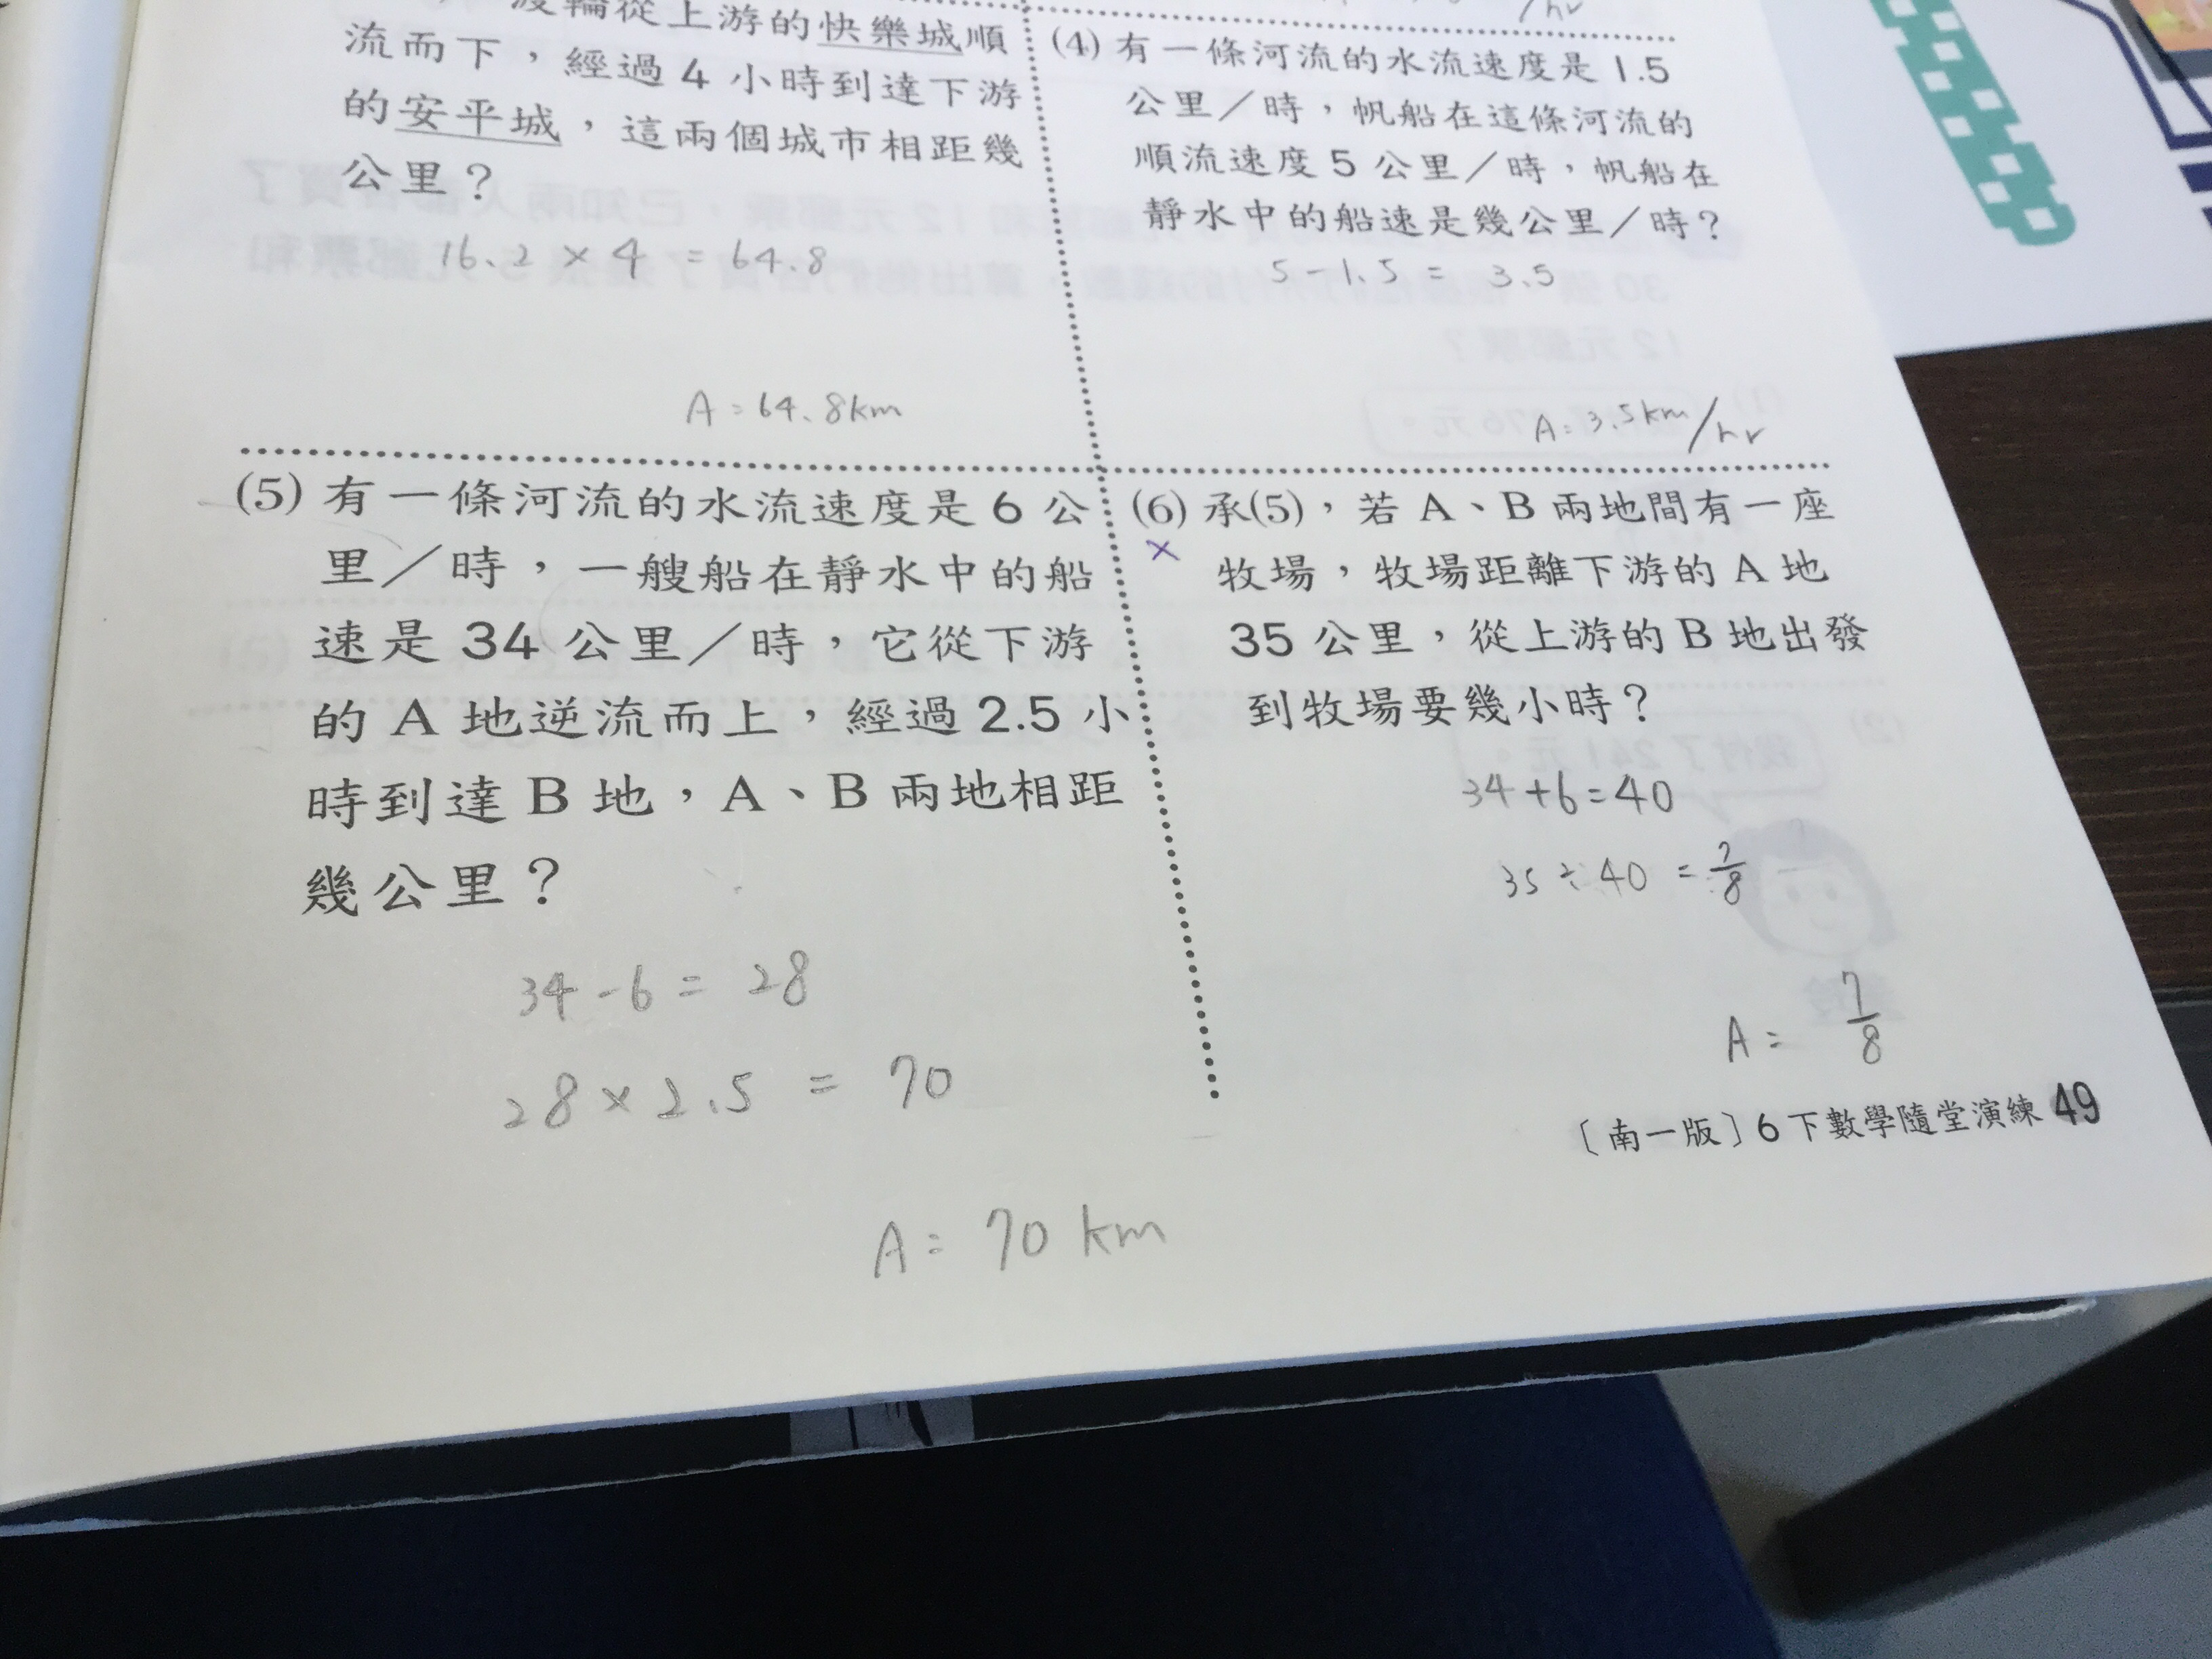 渡輪從上游的快樂城順
流而下，經過 4 小時到達下游
的安平城，這兩個城市相距幾
公里？
16.2 × 4 = 64.8
A = 64.8km
/hr
(4) 有一條河流的水流速度是 1.5
公里／時，帆船在這條河流的
順流速度 5 公里／時，帆船在
靜水中的船速是幾公里／時？
5 - 1.5 = 3.5
A = 3.5km/hr
(5) 有一條河流的水流速度是 6 公
里／時，一艘船在靜水中的船
速是 34 公里／時，它從下游
的 A 地逆流而上，經過 2.5 小
時到達 B 地，A、B 兩地相距
幾公里？
34 - 6 = 28
28 × 2.5 = 70
A = 70 km
(6) 承(5)，若 A、B 兩地間有一座
×
牧場，牧場距離下游的 A 地
35 公里，從上游的 B 地出發
到牧場要幾小時？
34 + 6 = 40
35 ÷ 40 = 7/8
A = 7/8
〔南一版〕6 下數學隨堂演練 49